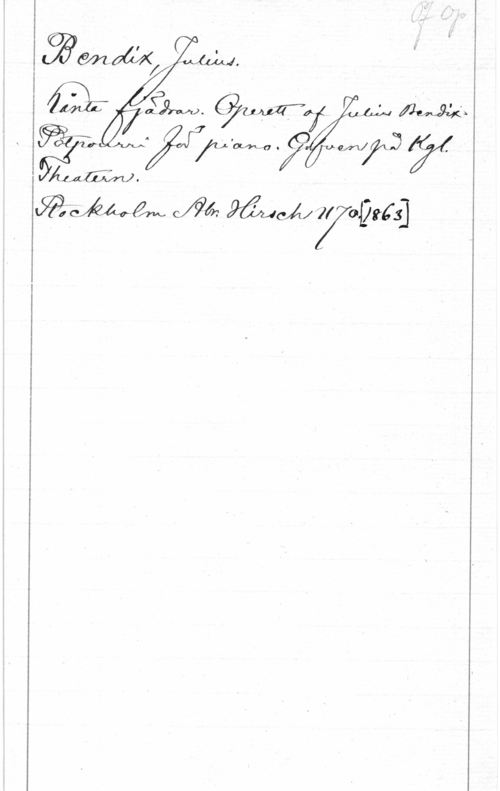 Öf Op
Bendix, Julius.
Lånta fjädrar. Operett af Julius Bendix.
Potpourri för piano. Gifven på Kgl.
Theatern.
Stockholm Abr. Hirsch 1170. [1863]